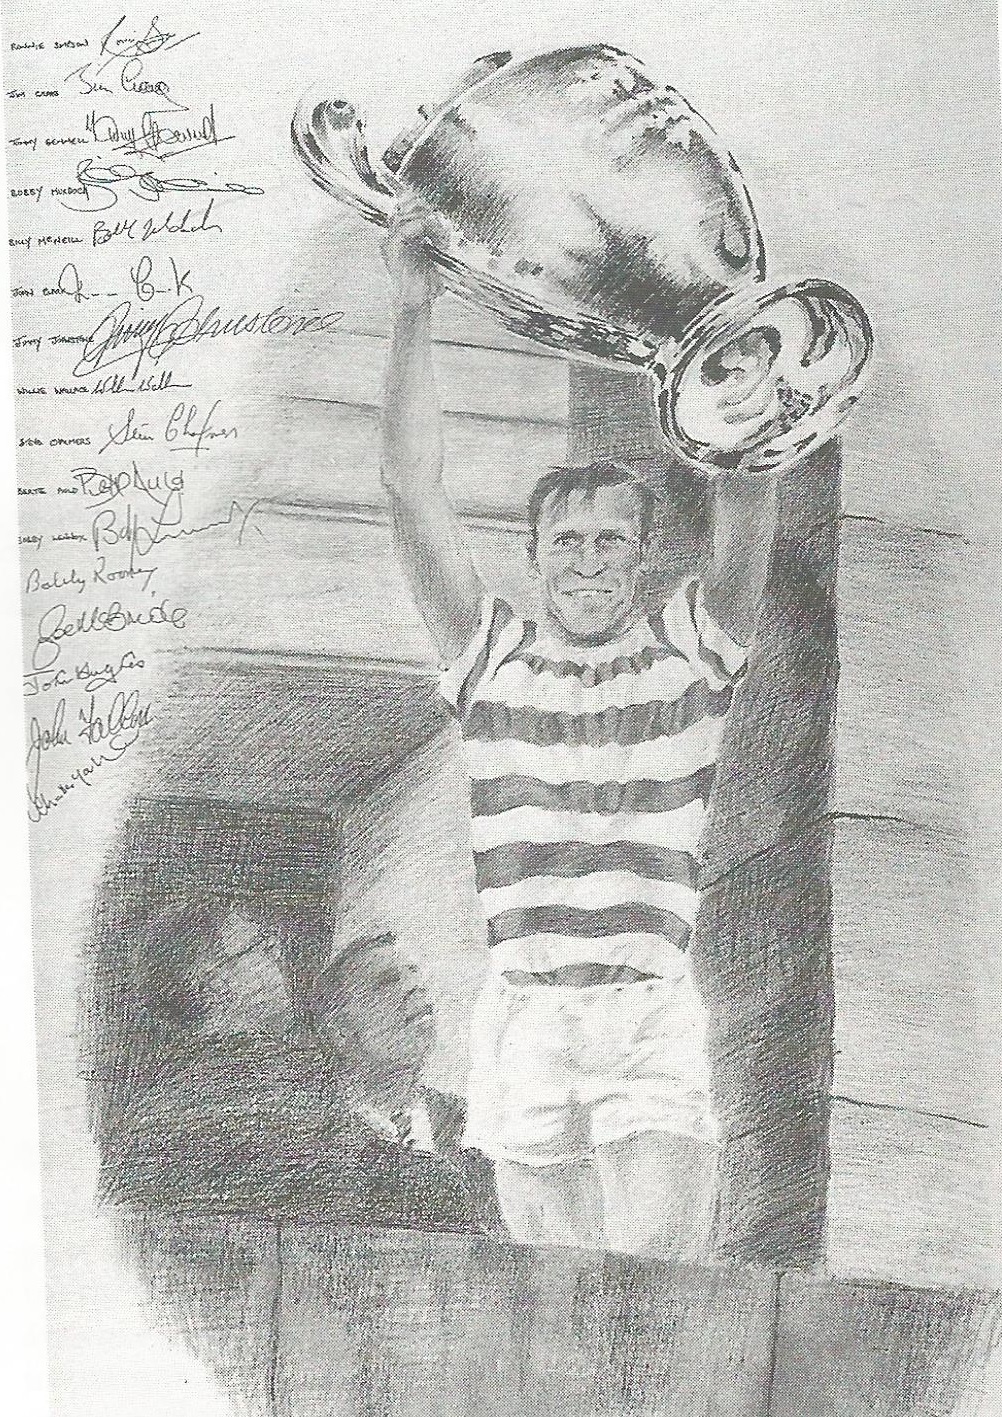 RONNIE SIMPSON Ronnie Simpson
JIM CRAIG Jim Craig
TOMMY GEMMELL Tommy Gemmell
BOBBY MURDOCH
BILLY McNEILL Billy McNeill
JOHN CLARK John Clark
JIMMY JOHNSTONE Jimmy Johnstone
WILLIE WALLACE Willie Wallace
STEVE CHALMERS Stevie Chalmers
BERTIE AULD Bertie Auld
BOBBY LENNOX Bobby Lennox
Bobby Rooney
Joe McBride
John Hughes
John Fallon